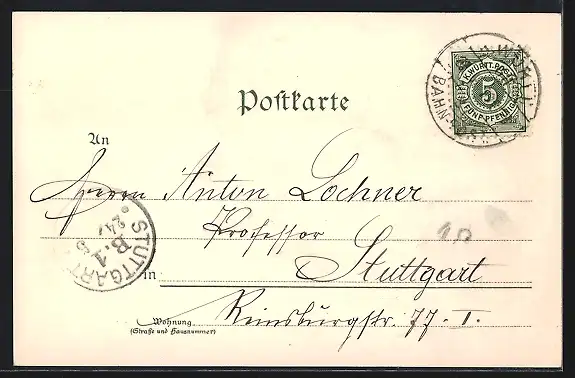 Postkarte
K. WÜRTT. POST
5
FÜNF PFENNIG
An
Herrn Anton Lochner
Professor
in Stuttgart
Wohnung
(Straße und Hausnummer)
Reinsburgstr. 77 I.
STUTTGART
B.1